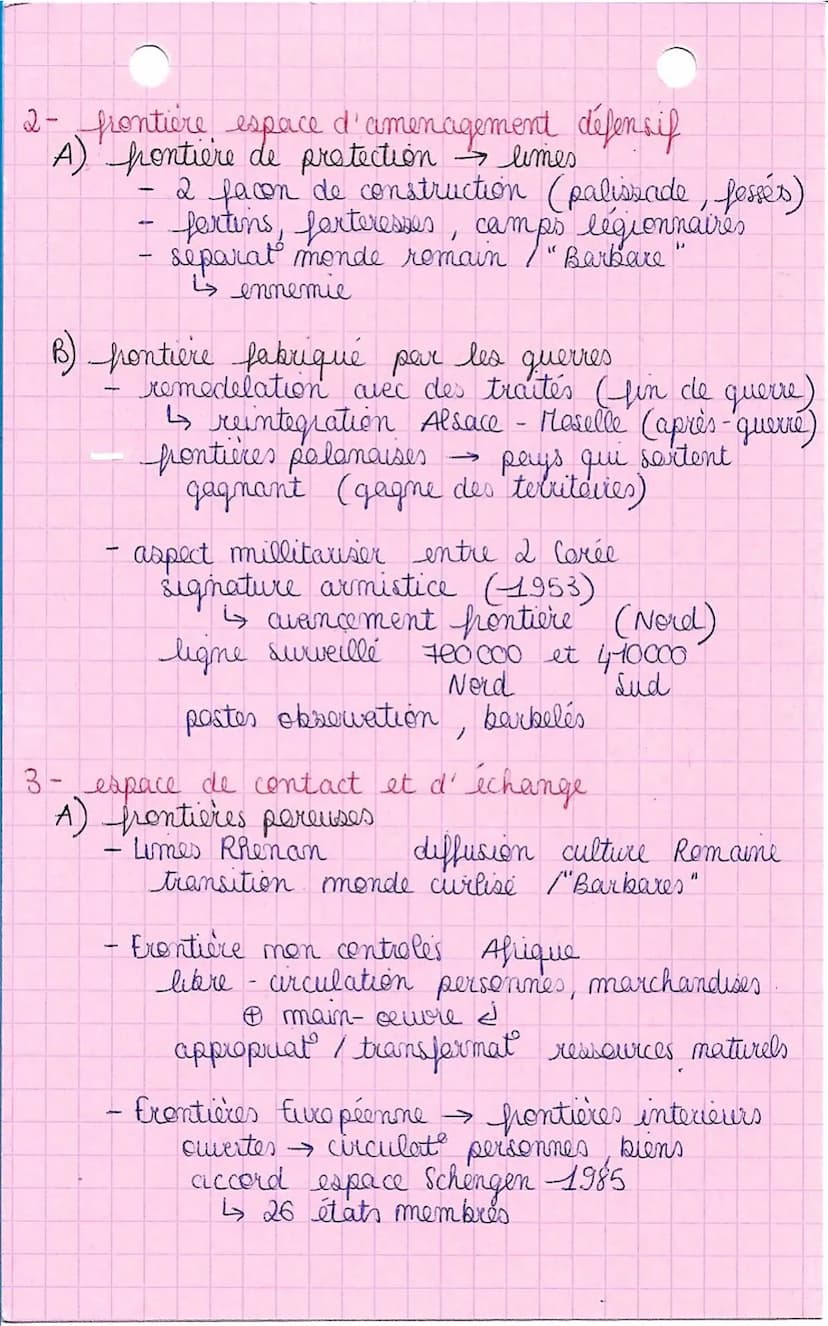 2- frontière espace d'amenagement défensif
A) frontière de protection → limes
- 2 façon de construction (palissade, fossés)
- fortins, forteresses, camps légionnaires
- séparat° monde romain / "Barbare"
↳ ennemie
B) frontière fabriqué par les guerres
- remodelation avec des traités (fin de guerre)
↳ reintegration Alsace - Moselle (après-guerre)
frontières polonaises → pays qui sortent
gagnant (gagne des territoires)
- aspect millitariser entre 2 Corée
signature armistice (1953)
↳ avancement frontière (Nord)
ligne surveillé 700 000 et 410 000
Nord Sud
postes observation, barbelés
3- espace de contact et d'échange
A) frontières poreuses
- Limes Rhenan diffusion culture Romaine
transition monde civilisé / "Barbares"
- Frontière non controlés Afrique
libre - circulation personnes, marchandises
⊕ main-oeuvre ↲
appropriat° / transformat° ressources naturels
- Frontières Européenne → frontières interieurs
ouvertes → circulat° personnes, biens
accord espace Schengen 1985
↳ 26 états membres